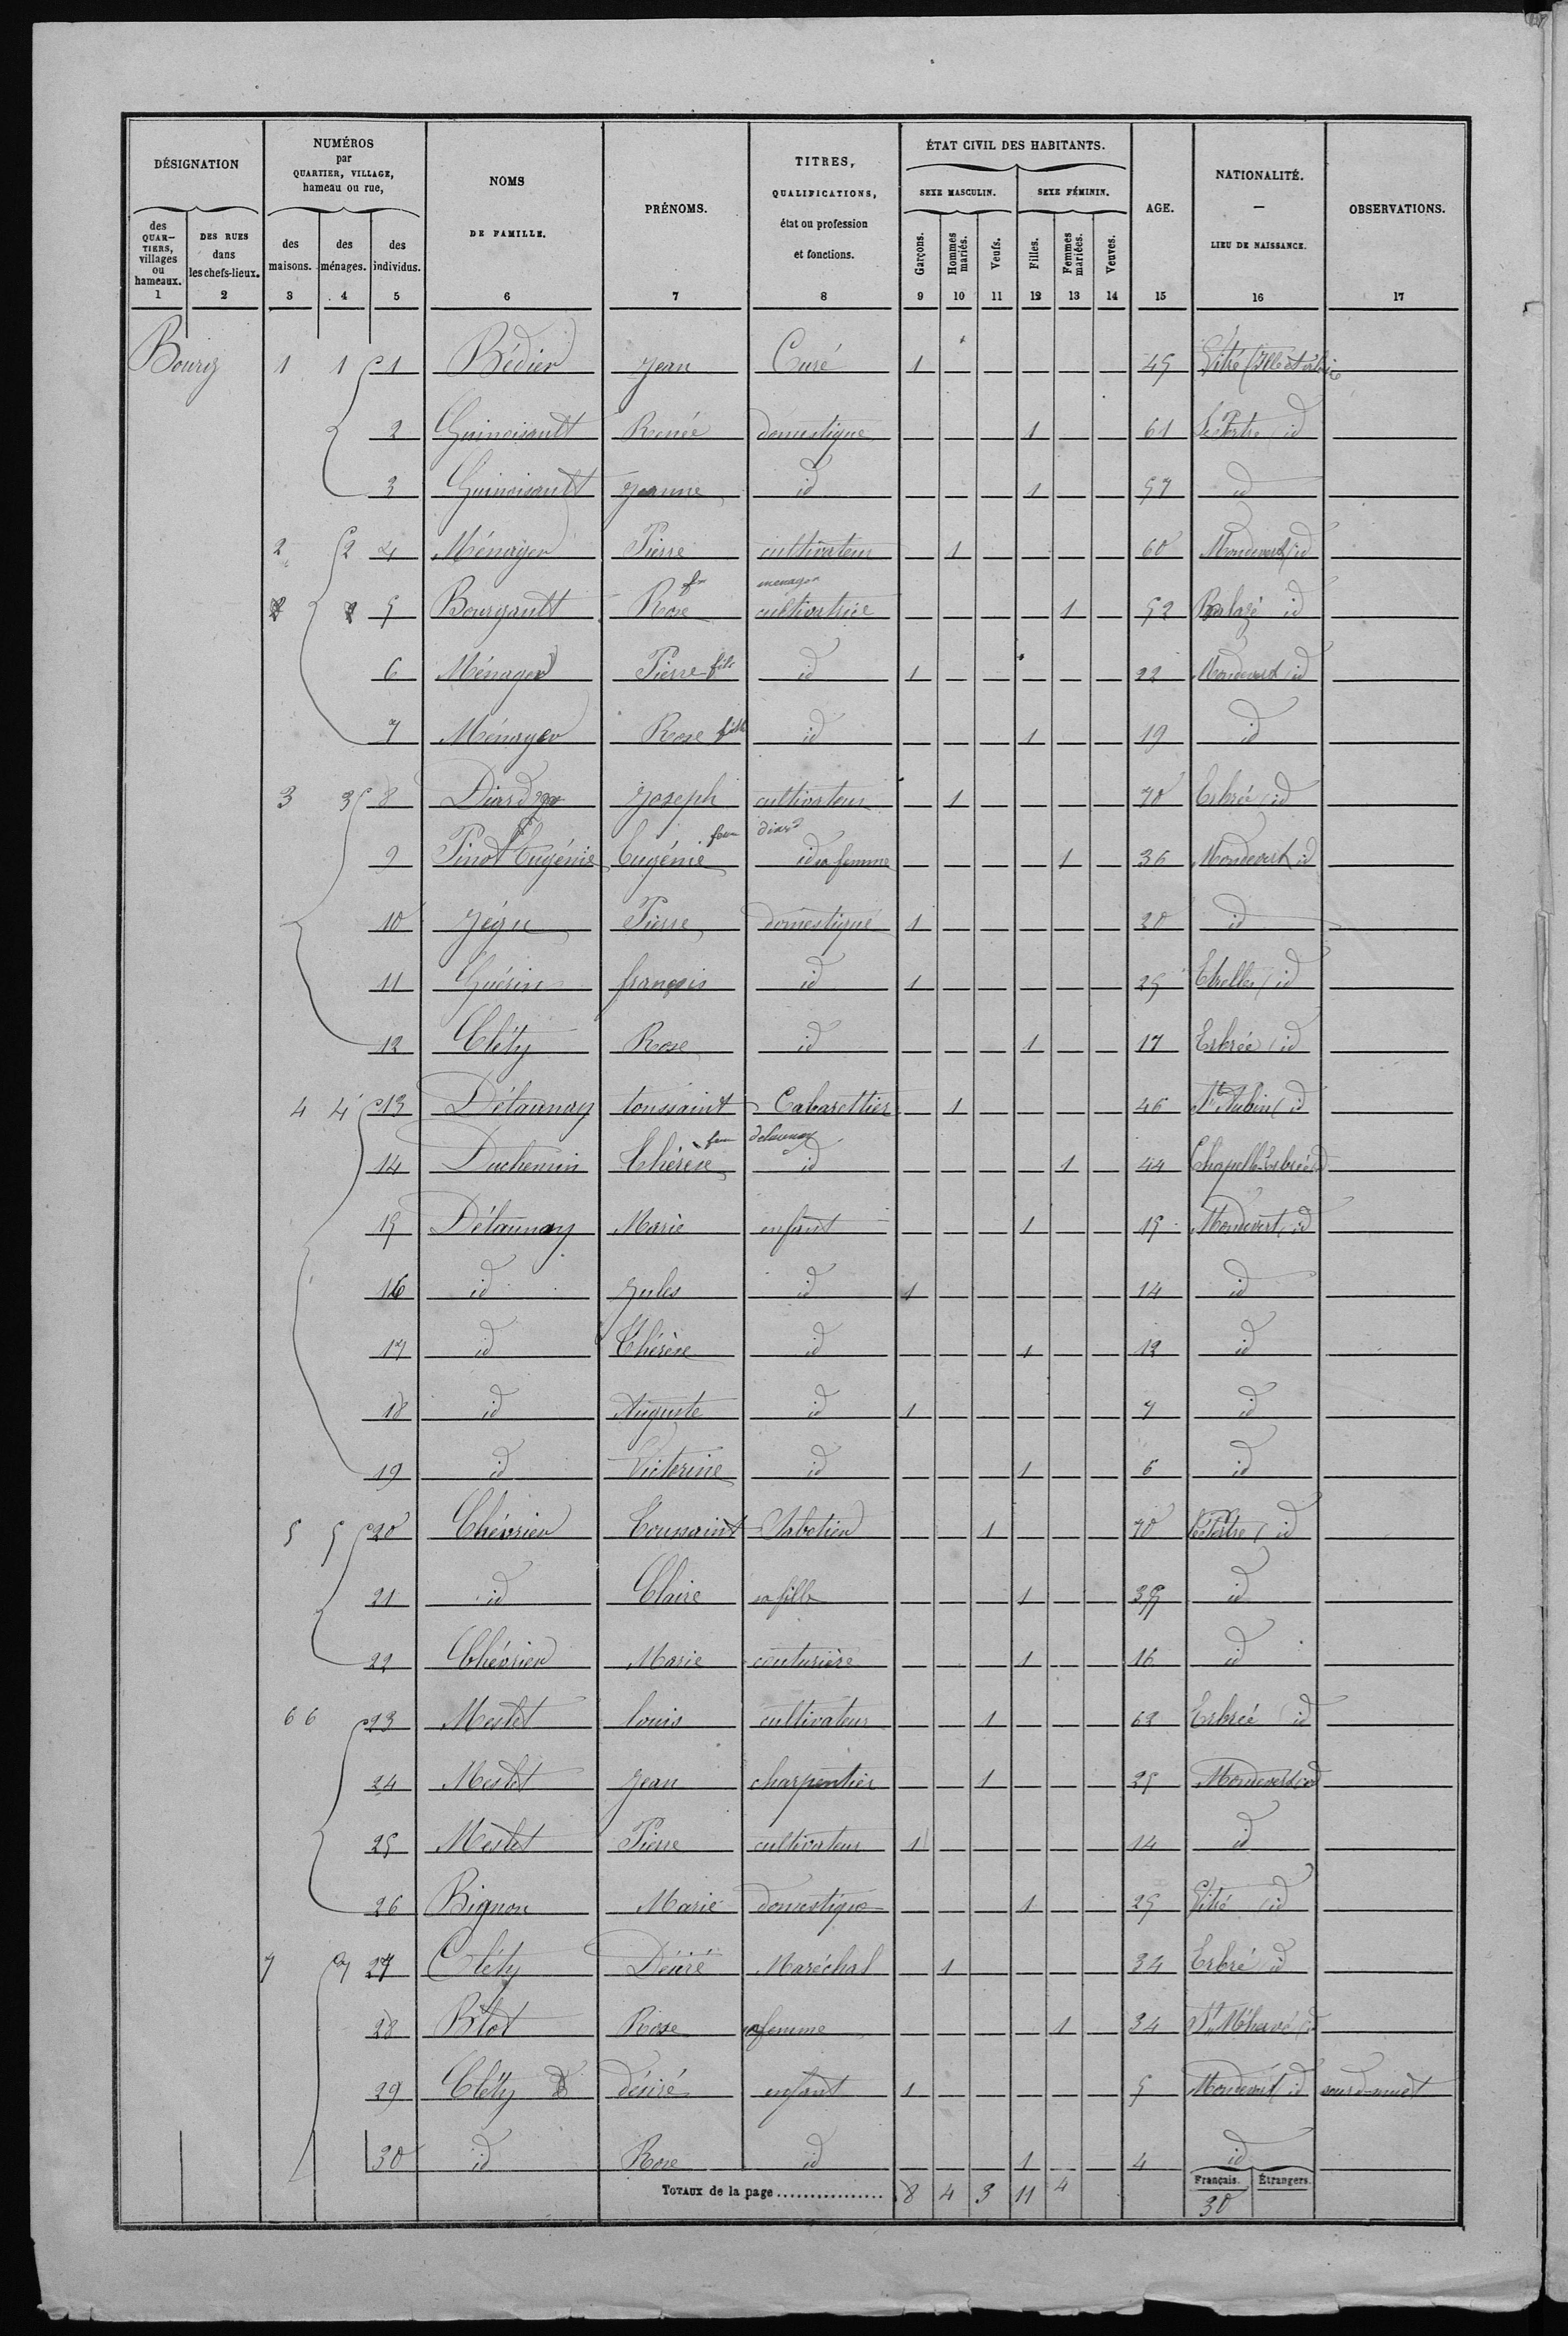 DÉSIGNATION
NUMÉROS par QUARTIER, VILLAGE, hameau ou rue,
NOMS DE FAMILLE.
PRÉNOMS.
TITRES, QUALIFICATIONS, état ou profession et fonctions.
ÉTAT CIVIL DES HABITANTS.
SEXE MASCULIN. SEXE FÉMININ.
AGE.
NATIONALITÉ. — LIEU DE NAISSANCE.
OBSERVATIONS.
des QUARTIERS, villages ou hameaux. DES RUES dans les chefs-lieux. des maisons. des ménages. des individus. Garçons. Hommes mariés. Veufs. Filles. Femmes mariées. Veuves.
1 2 3 4 5 6 7 8 9 10 11 12 13 14 15 16 17
Bourg 1 1 1 Bédier Jean Curé 1 45 Vitré (Ille et vilaine
2 Guinoisault Renée domestique 1 61 Le Pertre id
3 Guinoisault Jeanne id 1 57 id
2 2 4 Ménager Pierre cultivateur 1 60 Mondevert id
fm menager
5 Bourgault Rose cultivatrice 1 52 Balazé id
6 Ménager Pierre fils id 1 22 Mondevert id
7 Ménager Rose fille id 1 19 id
3 3 8 Diard Joseph cultivateur 1 70 Erbrée id
fem diard
9 Pinot Eugénie Eugénie id sa femme 1 36 Mondevert id
10 Jégu Pierre domestique 1 20 id
11 Guérin françois id 1 25 Etrelles id
12 Cléty Rose id 1 17 Erbrée id
4 4 13 Délaunay toussaint Cabarettier 1 46 St Aubin id
fem delaunay
14 Duchemin Thérèse id 1 44 Chapelle Erbrée id
15 Délaunay Marie enfant 1 15 Mondevert id
16 id Jules id 1 14 id
17 id Thérèse id 1 12 id
18 id Auguste id 1 7 id
19 id Victorine id 1 6 id
5 5 20 Chévrier Toussaint Sabotier 1 70 le Pertre id
21 id Claire sa fille 1 35 id
22 Chévrier Marie couturière 1 16 id
6 6 23 Meslet louis cultivateur 1 62 Erbrée id
24 Meslet Jean charpentier 1 25 Mondevert id
25 Meslet Pierre cultivateur 1 14 id
26 Bignon Marie domestique 1 25 Vitré id
7 7 27 Cléty Désiré Maréchal 1 34 Erbré id
28 Blot Rose sa femme 1 34 St M'hervé id
29 Cléty désiré enfant 1 5 Mondevert id sourd-muet
30 id Rose id 1 4 id
TOTAUX de la page 8 4 3 11 4 Français. Étrangers.
30